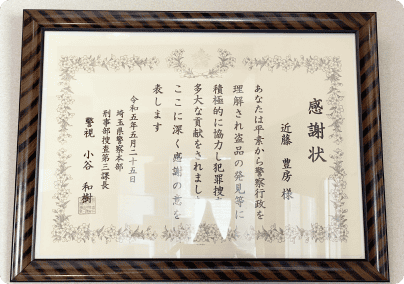 感謝状
近藤 豊房 様
あなたは平素から警察行政を
理解され盗品の発見等に
積極的に協力し犯罪捜
多大な貢献をされまし
ここに深く感謝の意を
表します
令和五年五月二十五日
埼玉県警察本部
刑事部捜査第三課長
警視 小谷 和樹